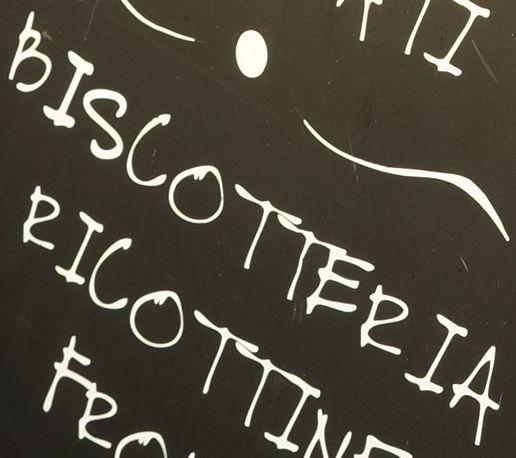 TI
BISCOTTERIA
RICOTTINE
FRO